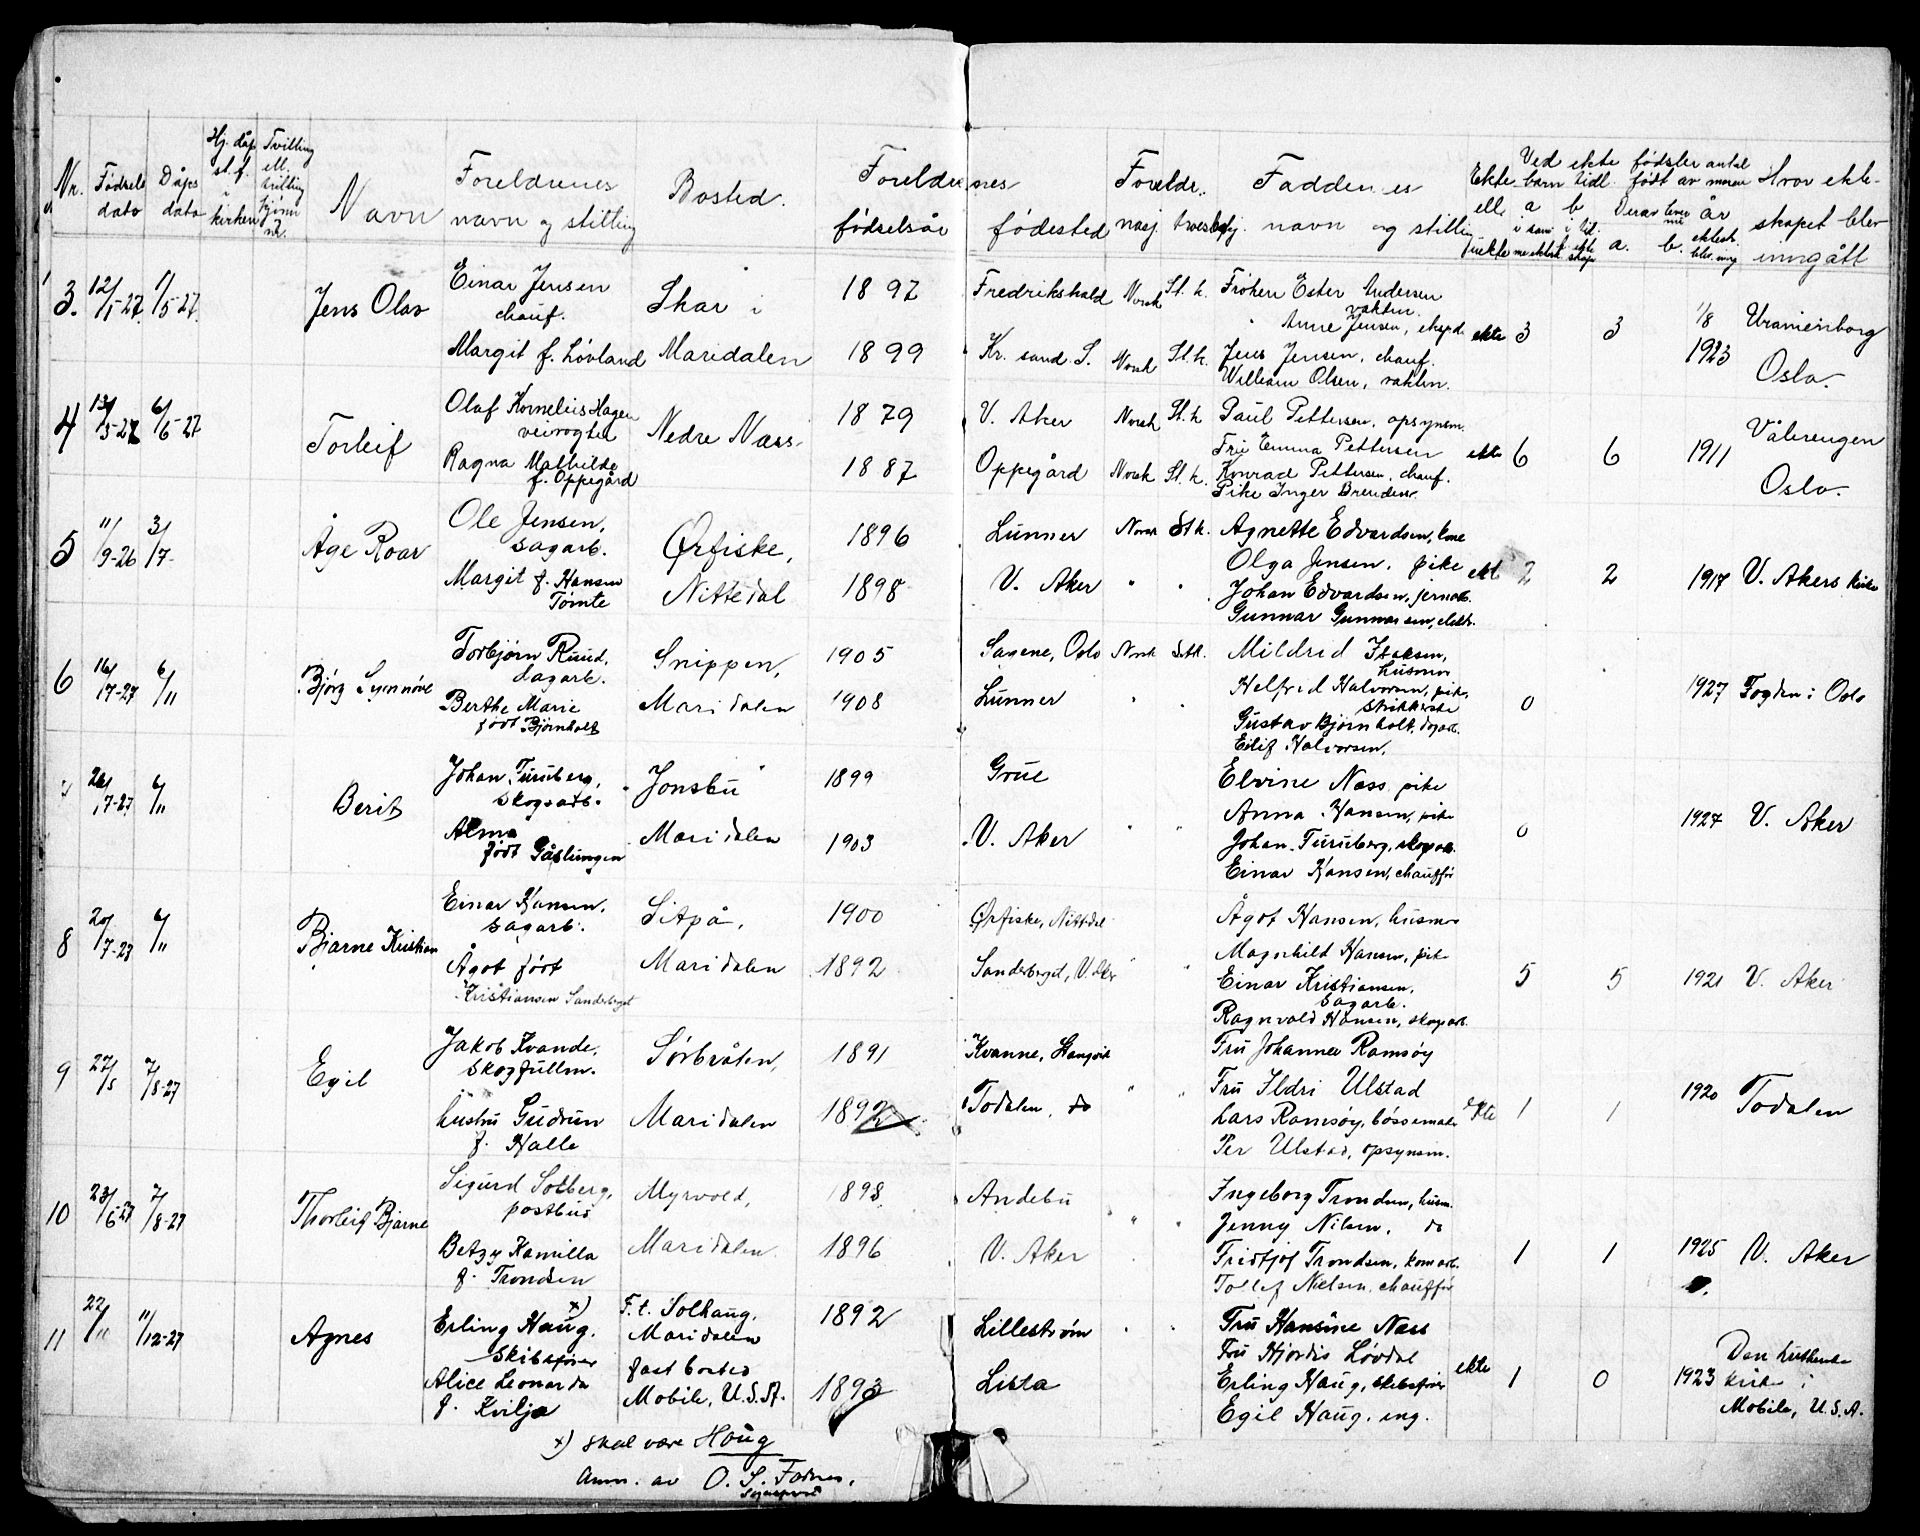 Nr. Fødsels dato Dåps dato Hj. dåp st. f. i kirken Tvilling ell. trilling kjønn nr. Navn Foreldrenes navn og stilling Bosted. Foreldrenes fødselsår fødested Foreldr. nasj. Faddernes navn og stilling Ekte ell. uekte Ved ekte fødsler antal barn tidl. født av moren a b Derav lever a. b. år Hvor ekteskapet blev inngått
3. 12/1-27. 1/5-27. Jens Olav
Einar Jensen Skar i 1897 Fredrikshald Norsk St. k. Frøken Ester Andersen
chauf. vaktm.
Anne Jensen, eksped. ekte 3 3 1/8 Uranienborg
Margit f. Løvland Maridalen 1899 Kr. sand S. Norsk St. k. Jens Jensen, chauf. 1923 Oslo.
William Olsen, vaktm.
4 13/5-27 6/6-27 Torleif
Olaf Kornelius Hagen Nedre Næss 1879 V. Aker Norsk St. k Paul Pettersen, opsynsm.
veivogter Fru Emma Pettersen ekte 6 6 1911 Vålerengen
Ragna Mathilde 1887 Oppegård Norsk St. k. Konrad Pettersen, chauf. Oslo.
f. Oppegård Pike Inger Brenden
5 11/9-26 3/7- Åge Roar
Ole Jensen, Ørfiske, 1896 Lunner Norsk St k. Agnette Edvardsen, kone
sagarb. Olga Jensen, pike ekt 2 2 1917 V. Akers kirke
Margit f. Hansen Nittedal 1898 V. Aker " " Johan Edvardsen, jernarb.
Tømte Gunnar Gunnarsen, elektr.
6 16/7-27 6/11 Bjørg Synnøve
Torbjørn Ruud, Snippen, 1905 Sagene, Oslo Norsk Stk. Mildrid Isaksen,
dagarb. husmor
Berthe Marie Maridalen 1908 Lunner " " Helfrid Halvorsen, pike, 0 1927 Fogden i Oslo
født Bjørnholt strikkerske
Gustav Bjørnholt, dagarb.
Eilif Halvorsen,
26/7-27 6/11 Berit
Johan Furuberg, Jonsbu 1899 Grue Elvine Næss pike
skogsarb. Anna Hansen, pike
Alma Maridalen 1903 V. Aker " " Johan Furuberg, skogsarb. 0 1927 V. Aker
født Gåslungen Einar Hansen, chauffør
8 20/7-27 6/11 Bjarne Kristian
Einar Hansen, Sitpå, 1900 Ørfiske, Nittedal Ågot Hansen, husmor
sagarb. Magnhild Hansen, pike
Ågot født Maridalen 1892 Sanderberget, V. Aker " " Einar Kristiansen, 5 5 1921 V. Aker
Kristiansen Sanderberget sagarb.
Ragnvald Hansen, skogsarb.
9 27/5 7/8-27 Egil
Jakob Kvande, Sørbråten, 1891 Kvanne, Stangvik Fru Johanne Ramsøy
skogfullm. Fru Ildri Ulstad
hustru Gudrun Maridalen 1892 Todalen, do " " Lars Ramsøy, bøssemaker ekte 1 1 1920 Todalen
f. Halle Per Ulstad, opsynsm.
10 23/6-27 7/8-27 Thorleif Bjarne
Sigurd Solberg, Myrvold, 1898 Andebu Ingeborg Trondsen, husm.
postbud Jenny Nilsen, do
Betzy Kamilla Maridalen 1896 V. Aker Fridtjof Trondsen, komarb. 1 1 1925 V. Aker
f. Trondsen Tollef Nielsen, chauffør
11 22/11 11/12-27 Agnes
Erling Haug, x) F. t. Solhaug, 1892 Lillestrøm Fru Hansine Næss
skibsfører Maridalen Fru Hjørdis Løvdal
Alice Leonarda fast bosted 1893 Lista Erling Haug, skibsfører ekte 1 0 1923 Den lutherske kirke i
f. Kvilja Mobile, U.S.A. Egil Haug, ing. Mobile, U.S.A.
x) skal være Houg
Anm. av O. S. Fodnes,
sogneprest